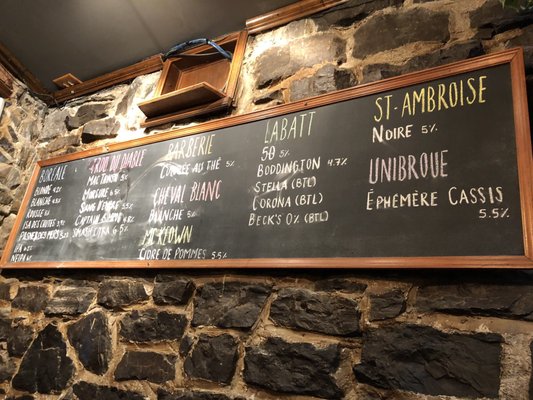 BORÉALE
BLONDE
BLANCHE
ROUSSE
IPA
TROU DU DIABLE
BARBERIE
CUIVRÉE AU THÉ 5%
CHEVAL BLANC
BLANCHE 5%
MCKEOWN
CIDRE DE POMMES 5.5%
LABATT
50 5%
BODDINGTON 4.7%
STELLA (BTL)
CORONA (BTL)
BECK'S 0% (BTL)
ST-AMBROISE
NOIRE 5%
UNIBROUE
ÉPHÉMÈRE CASSIS
5.5%